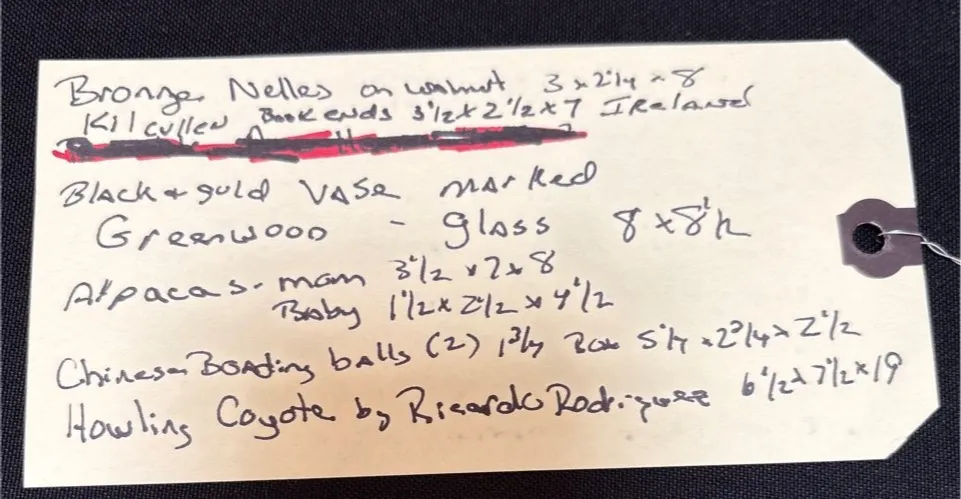 Bronze Nelles on walnut 3 x 2 1/4 x 8
Kilcullen Book ends 3 1/2 x 2 1/2 x 7 Ireland
Black & gold VASE marked
Greenwood - glass 8 x 8 1/2
Alpacas - mom 3 1/2 x 7 x 8
Baby 1 1/2 x 2 1/2 x 4 1/2
Chinese Boading balls (2) 1 3/4 Box 5 1/4 x 2 3/4 x 2 1/2
Howling Coyote by Ricardo Rodriguez 6 1/2 x 7 1/2 x 19